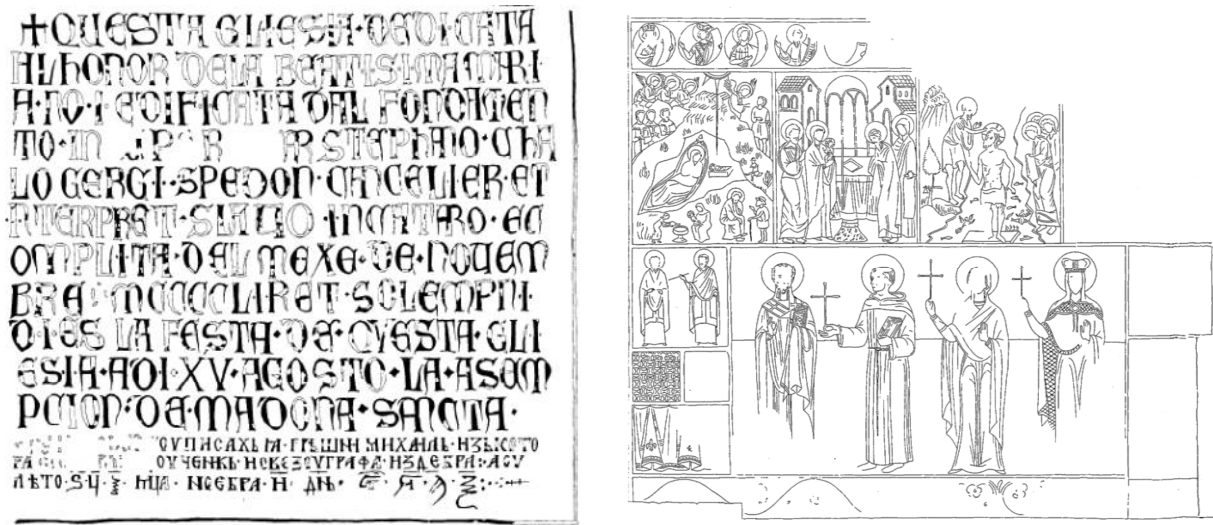 +QUESTA GLIESIA·DEDICATA
AL HONOR DELA BEATISIMA MARI
A·FO·I EDIFICATA DAL FONDAMEN
TO·IN STEPHANO·CHA
LOGERGI·SPEDON·CANCELLIER·ET
INTERPRET·SLAVO IN CATARO·EC
OMPLITA·DEL MEXE·DE·NOUEM
BRE MCCCCLI SOLEMPNI
D·I·ES LA FESTA·DE QVESTA·GLI
ESIA·ADI·XV·AGOSTO·LA·ASEM
PCION·DE·MADONA·SANCTA·
ГРѢШНИ МИХАИЛЬ·ИЗЬКОТО
РА ОУЧЕНКЬ· ИЗДЕБРА·АСУ
ЛѢТО·Ѕ·Ц· МЦА·НОЕБРА·И·ДНЬ·